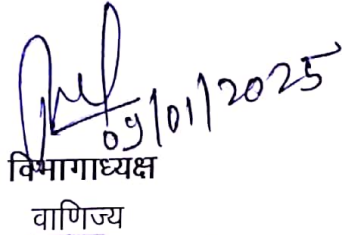 09/01/2025
विभागाध्यक्ष
वाणिज्य